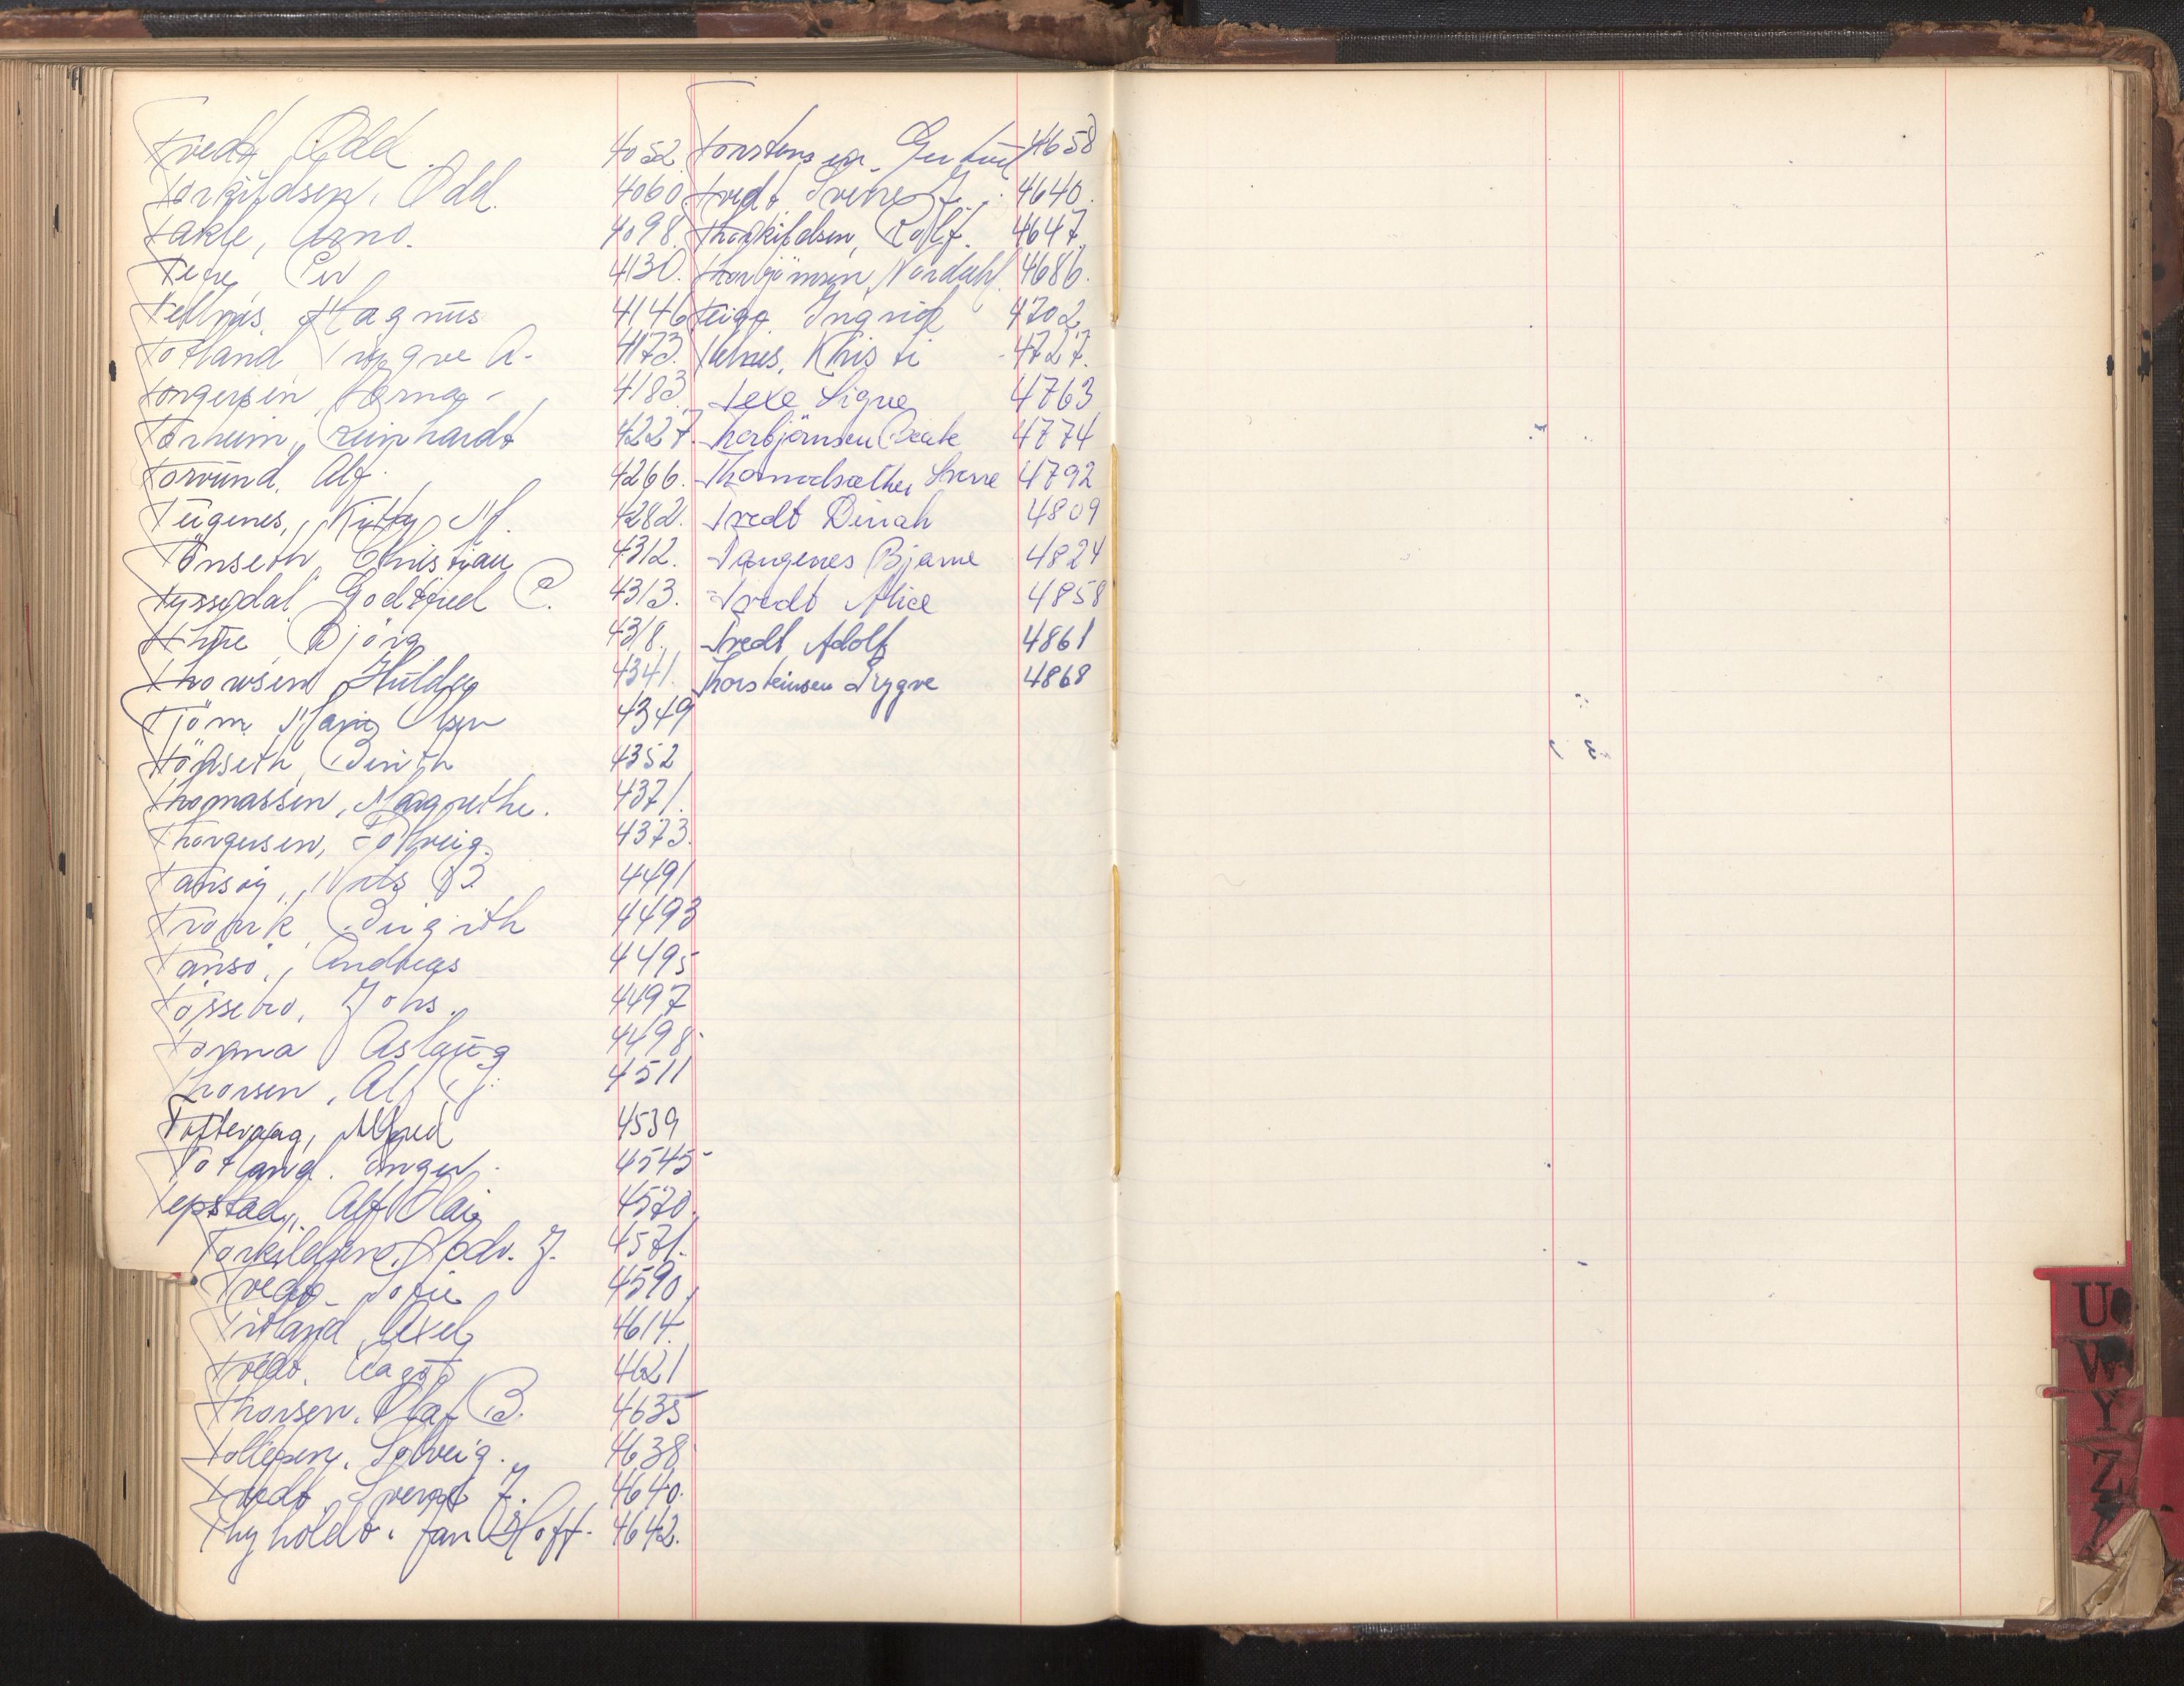 Tvedt Odd. 4052
Torkildsen, Odd. 4060
Takle, Arno. 4098.
Tege, Per 4130.
Tellnis, Magnus 4146
Totland Trygve A. 4173.
Torgersen, 4183
Torheim, Reinhardt 4227.
Torvund, Alf. 4266.
Teigenes, Kitty M. 4282.
Tönseth, Christian 4312.
Tyssedal Godtfred C. 4313.
Björg 4318.
Thowsen Hulda 4341.
Tjöm Marie Olsen 4349
Tönseth, Berith 4352
Thomassen, Margrethe. 4371.
Thorgersen, Solveig. 4373.
Nils B 4491
Birgith 4493
Tansö, Andreas 4495
Tössebro, Johs. 4497
Aslaug 4498
Thorsen, Alf J. 4511
Toftevaag, Alfred 4539
Totland. Inger. 4545
Tepstad, Alf Olai 4570.
Torkildsen, Lodv. J. 4571.
Tvedt Sofie 4590.
Axel 4614.
Tvedt. Aagot 4621
Thorsen. Olaf B. 4635
Tollefsen. Solveig. 4638
Tvedt, Sverre J. 4640.
Thyholdt. Jan Hoff. 4642.
Torstensen, Gudrun 4658
Tvedt Sverre J. 4640.
Thorkildsen, Rolf. 4647.
Thorbjörnsen, Nordahl. 4686.
Teige Ingrid 4702
Kristi 4727.
Texe Signe 4763
Thorbjörnsen Beate 4774
Thormodsæther Sverre 4792
Tvedt Dinah 4809
Tangenes Bjarne 4824
Tvedt Alice 4858
Tvedt Adolf 4861
Thorsteinsen Trygve 4868
U
W
Y
Z